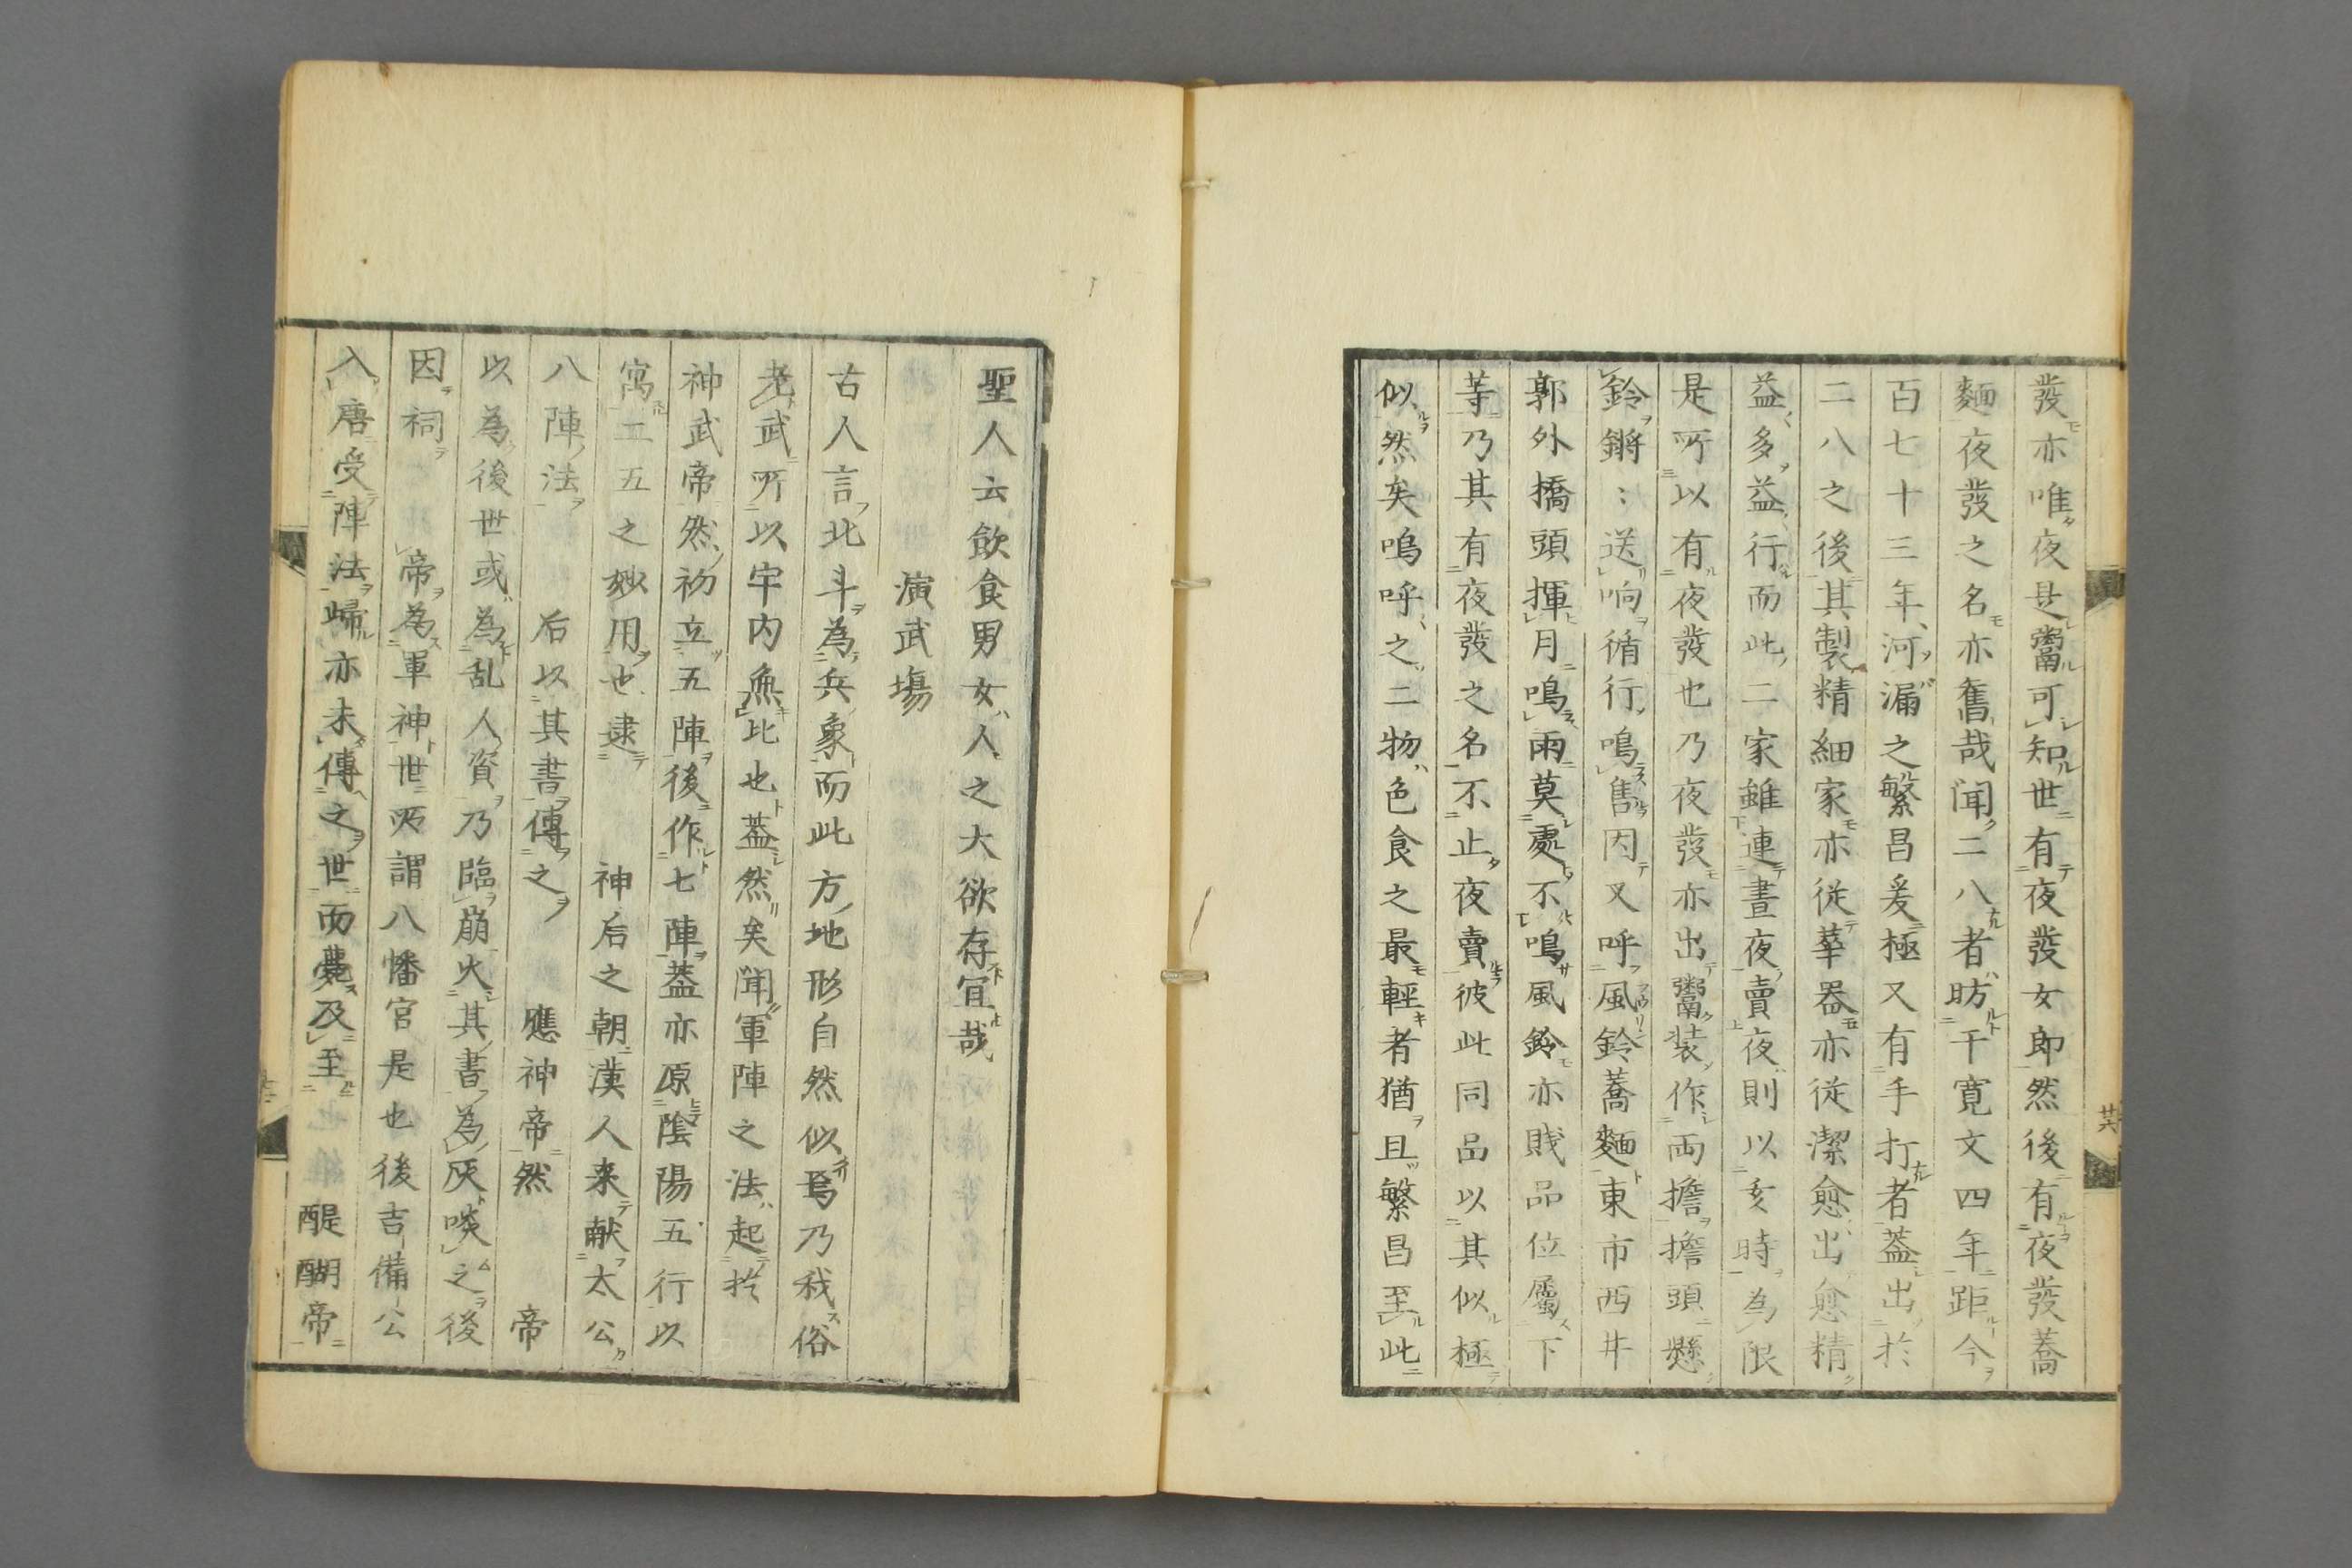 發亦唯夜是鬻可知世有夜發女卽然後有夜發蕎
麵夜發之名亦舊哉聞二八者昉于寬文四年距今
百七十三年河漏之繁昌爰極又有手打者蓋出於
二八之後其製精細家亦従華器亦従潔愈出愈精
益多益行而此二家雖連晝夜賣夜則以亥時為限
是所以有夜發也乃夜發亦出鬻装作両擔擔頭懸
鈴鏘〻送响循行鳴售因又呼風鈴蕎麵東市西井
郭外橋頭揮月鳴雨莫處不鳴風鈴亦賤品位屬下
等乃其有夜發之名不止夜賣彼此同品以其似極
似然矣嗚呼之二物色食之最輕者猶且繁昌至此
廿六
聖人云飲食男女人之大欲存宜哉
演武場
古人言北斗為兵象而此方地形自然似焉乃我俗
老武所以牢内魚比也蓋然矣聞軍陣之法起於
神武帝然初立五陣後作七陣蓋亦原陰陽五行以
寓二五之妙用也逮 神后之朝漢人来献太公
八陣法 后以其書傳之 應神帝然 帝
以為後世或為乱人資乃臨崩火其書為灰啖之後
因祠 帝為軍神世所謂八幡宮是也後吉備公
入唐受陣法歸亦未傳之世而薨及至 醍醐帝